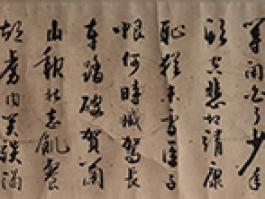 等閒白了少年
頭空悲切靖康
恥猶未雪臣子
恨何時滅駕長
車踏破賀蘭
山缺壯志飢餐
胡虜肉笑談渴